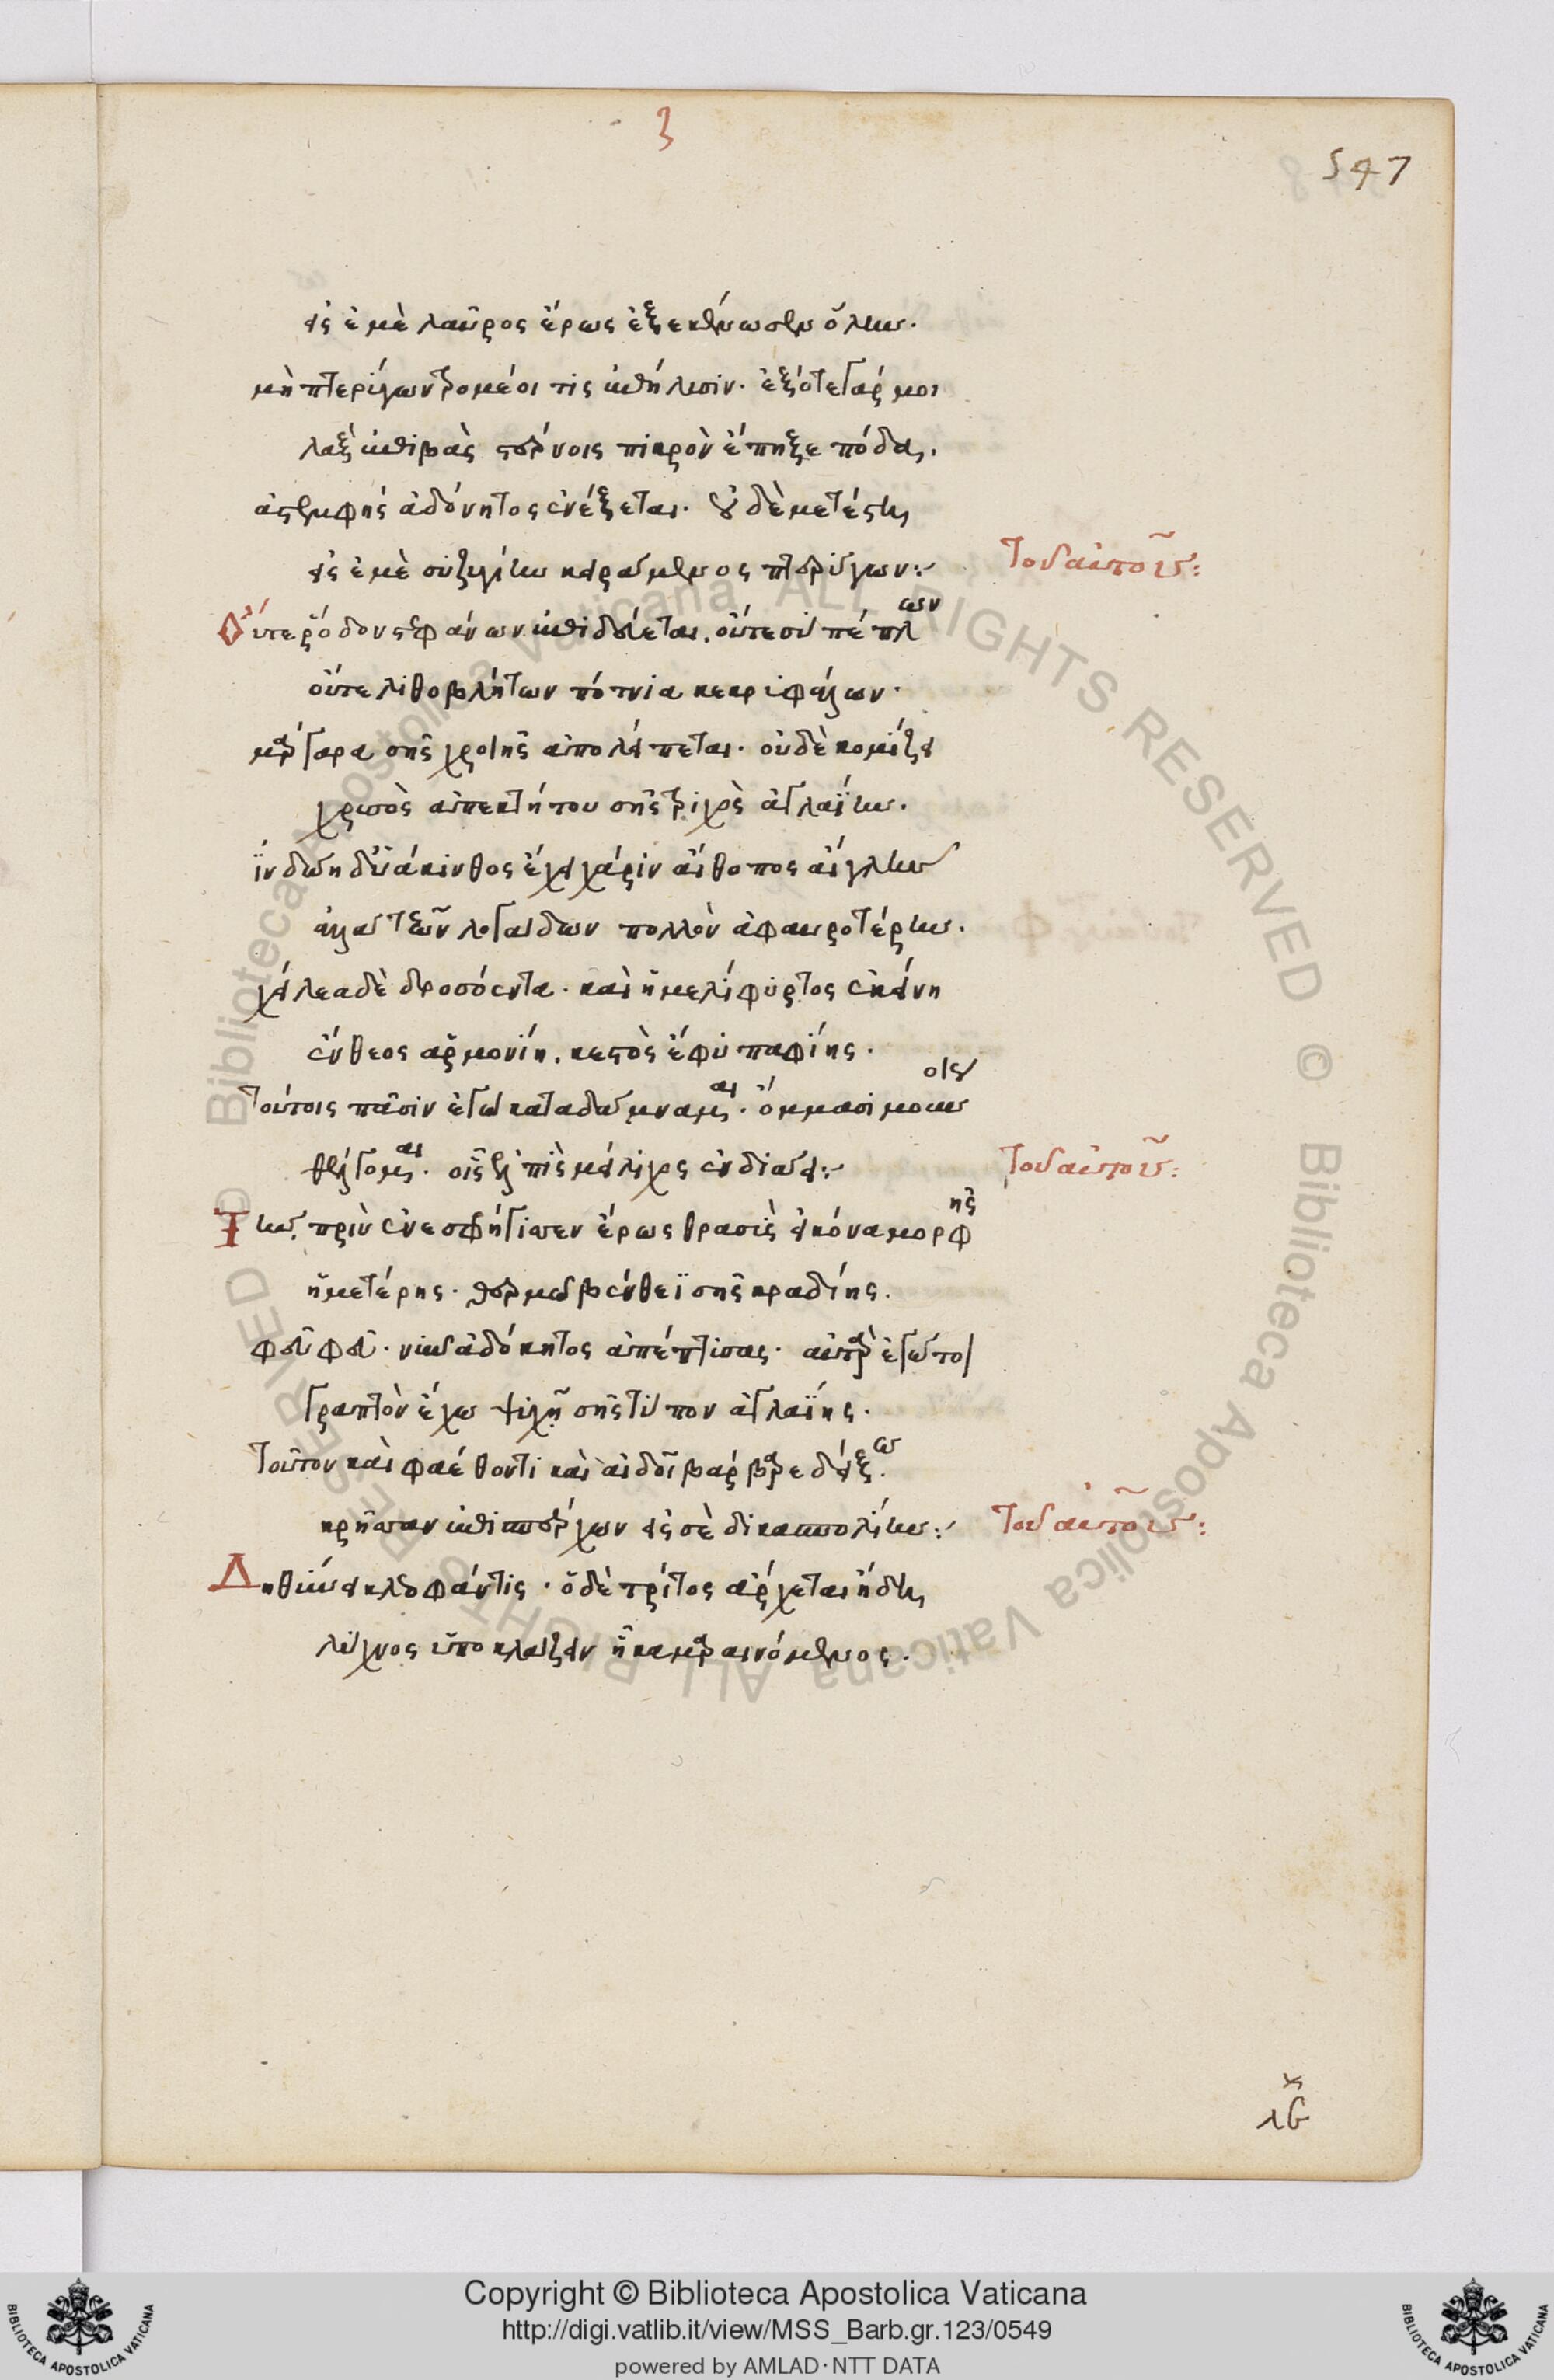 3
547
εἰς ἐμὲ λαῦρος ἔρως ἐξεκένωσεν ὅλην.
μὴ πτερύγων τρομέοι τις ἐπήλυσιν. ἐξότε γάρ μοι
λὰξ ἐπιβὰς στέρνοις πικρὸν ἔπηξε πόδα,
ἀστεμφὴς ἀδόνητος ἐνέζεται. οὐδὲ μετέστη
εἰς ἐμὲ συζυγίην κειράμενος πτερύγων:
τοῦ αὐτοῦ:
Οὔτε ῥόδον στεφάνων ἐπιδεύεται, οὔτε σὺ πέπλων
οὔτε λιθοβλήτων πότνια κεκρυφάλων.
μάργαρα σῆς χροιῆς ἀπολείπεται. οὐδὲ κομίζει
χρυσὸς ἀπεκτήτου σῆς τριχὸς ἀγλαΐην.
ἰνδώη δ' ὑάκινθος ἔχει χάριν αἴθοπος αἴγλην
ἀλλὰ τεῶν λογάδων πολλὸν ἀφαυροτέρην.
χείλεα δὲ δροσόεντα. καὶ ἡ μελίφυρτος ἐκείνη
ἔνθεος ἁρμονίη, κεστὸς ἔφυ παφίης.
τούτοις πᾶσιν ἐγὼ καταδάμναμαι. ὄμμασι μούνοις
θέλγομαι. οἷς ἐλπὶς μείλιχος ἐνδιάει:
τοῦ αὐτοῦ:
Τὴν πρὶν ἐνεσφρήγισσεν ἔρως θρασὺς εἰκόνα μορφῆς
ἡμετέρης. θερμῷ βένθεϊ σῆς κραδίης.
φεῦ φεῦ. νῦν ἀδόκητος ἀπέπτυσας. αὐτὰρ ἐγώ τοι
γραπτὸν ἔχω ψυχῇ σῆς τύπον ἀγλαΐης.
τοῦτον καὶ φαέθοντι καὶ ἄϊδι βάρβαρε δείξω.
κρῆσσαν ἐπισπέρχων εἰς σὲ δικασπολίην:
τοῦ αὐτοῦ:
Δηθύνει κλεοφάντις. ὁ δὲ τρίτος ἄρχεται ἤδη
λύχνος ὑποκλάζειν ἦκα μαραινόμενος.
Copyright © Biblioteca Apostolica Vaticana
http://digi.vatlib.it/view/MSS_Barb.gr.123/0549
powered by AMLAD·NTT DATA